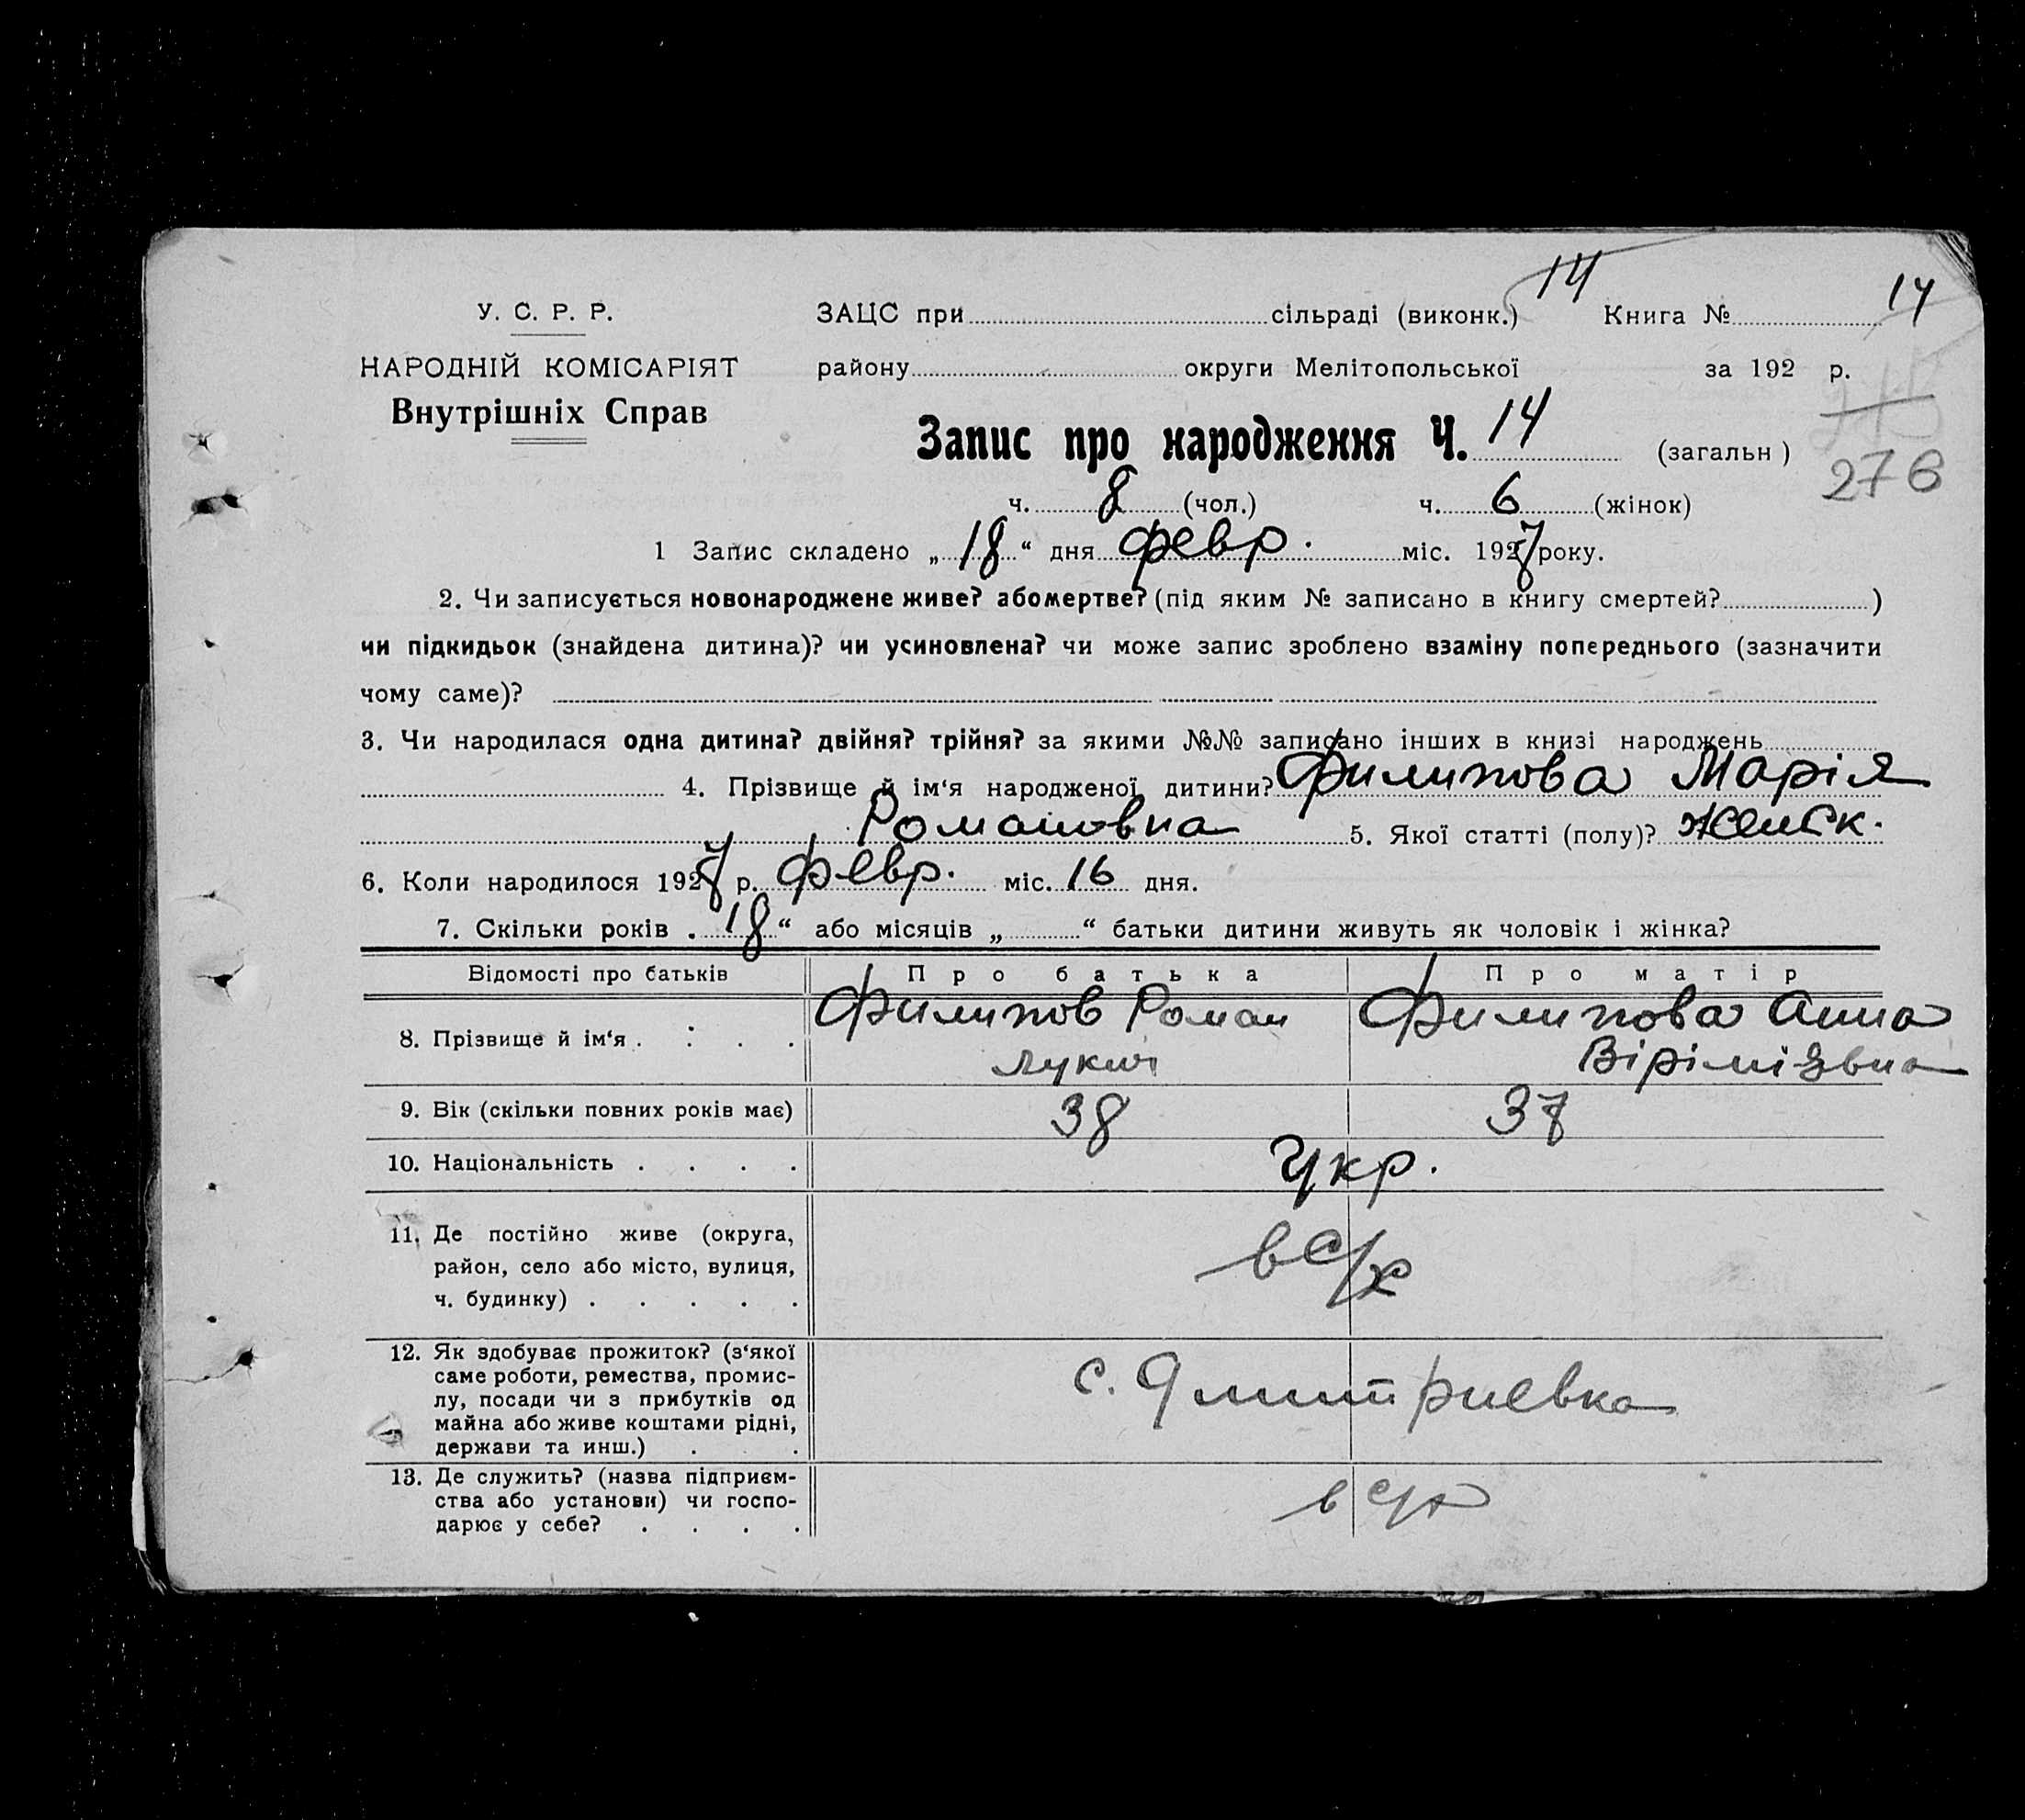 14
У. С. Р. Р. ЗАЦС при сільраді (виконк.) Книга № 14
НАРОДНІЙ КОМІСАРІЯТ району округи Мелітопольської за 192 р.
Внутрішніх Справ
Запис про народження Ч. 14 (загальн )
276
ч. 8 (чол.) ч. 6 (жінок)
1 Запис складено „ 18 “ дня февр. міс. 1927 року.
2. Чи записується новонароджене живе? або мертве? (під яким № записано в книгу смертей? )
чи підкидьок (знайдена дитина)? чи усиновлена? чи може запис зроблено взаміну попереднього (зазначити
чому саме)?
3. Чи народилася одна дитина? двійня? трійня? за якими №№ записано інших в книзі народжень
4. Прізвище й ім‘я народженої дитини? Филипова Марія
Романовна 5. Якої статті (полу)? женск.
6. Коли народилося 1927 р. февр. міс. 16 дня.
7. Скільки років „ 18 “ або місяців „ “ батьки дитини живуть як чоловік і жінка?
Відомості про батьків Про батька Про матір
8. Прізвище й ім‘я . . . . Филипов Роман Филипова Анна
Лукич
9. Вік (скільки повних років має) 38 37
10. Національність . . . . Укр.
11. Де постійно живе (округа,
район, село або місто, вулиця,
ч. будинку) . . . . . в с/х
12. Як здобуває прожиток? (з‘якої
саме роботи, ремества, промис-
лу, посади чи з прибутків од
майна або живе коштами рідні,
держави та инш.) . . с. Дмитриевка
13. Де служить? (назва підприєм-
ства або установи) чи госпо-
дарює у себе? . . . . в с/х